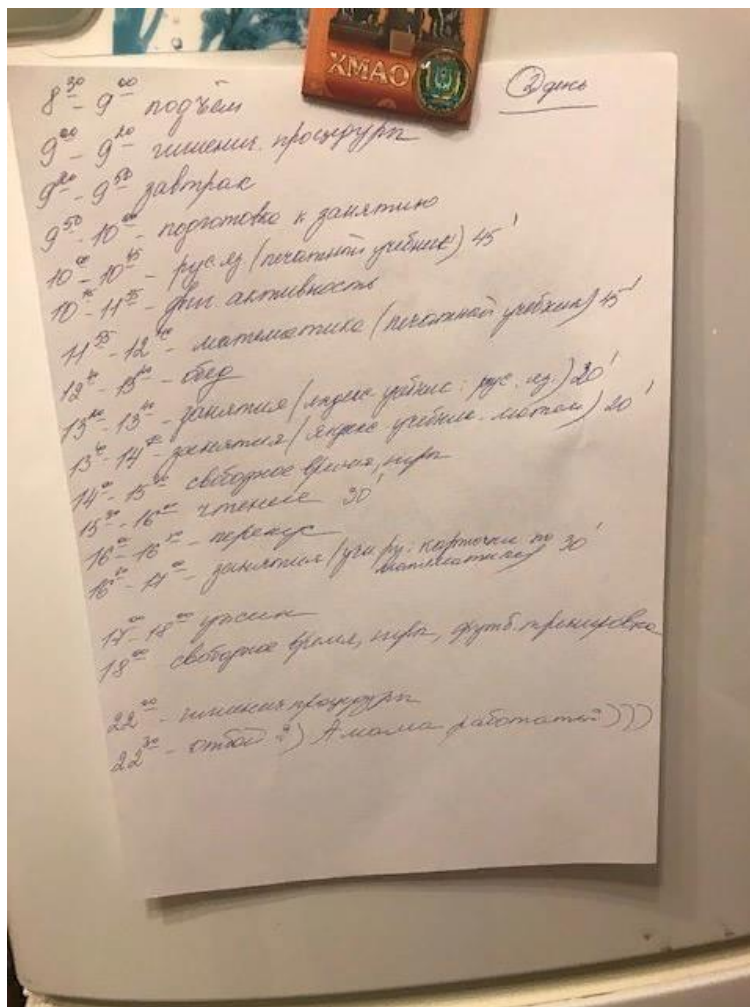 ХМАО
2 день
8³⁰ - 9⁰⁰ подъём
9⁰⁰ - 9²⁰ гигиенич. процедуры
9²⁰ - 9⁵⁰ завтрак
9⁵⁰ - 10⁰⁰ - подготовка к занятию
10⁰⁰ - 10⁴⁵ - рус яз (печатный учебник) 45'
10⁴⁵ - 11⁵⁵ - физ. активность
11⁵⁵ - 12⁴⁰ - математика (печатный учебник) 45'
12⁴⁰ - 13²⁰ - обед
13²⁰ - 13⁴⁰ - занятия (яндекс учебник: рус. яз.) 20'
13⁴⁰ - 14⁰⁰ - занятия (яндекс учебник. матем) 20'
14⁰⁰ - 15³⁰ свободное время, игры
15³⁰ - 16⁰⁰ чтение 30'
16⁰⁰ - 16³⁰ - перекус
16³⁰ - 17⁰⁰ - занятия (учи.ру: карточки по
математике) 30'
17⁰⁰ - 18⁰⁰ ужин
18⁰⁰ свободное время, игры, футб. тренировка
22⁰⁰ - гигиенич процедуры
22³⁰ - отбой :) А мама работать!)))